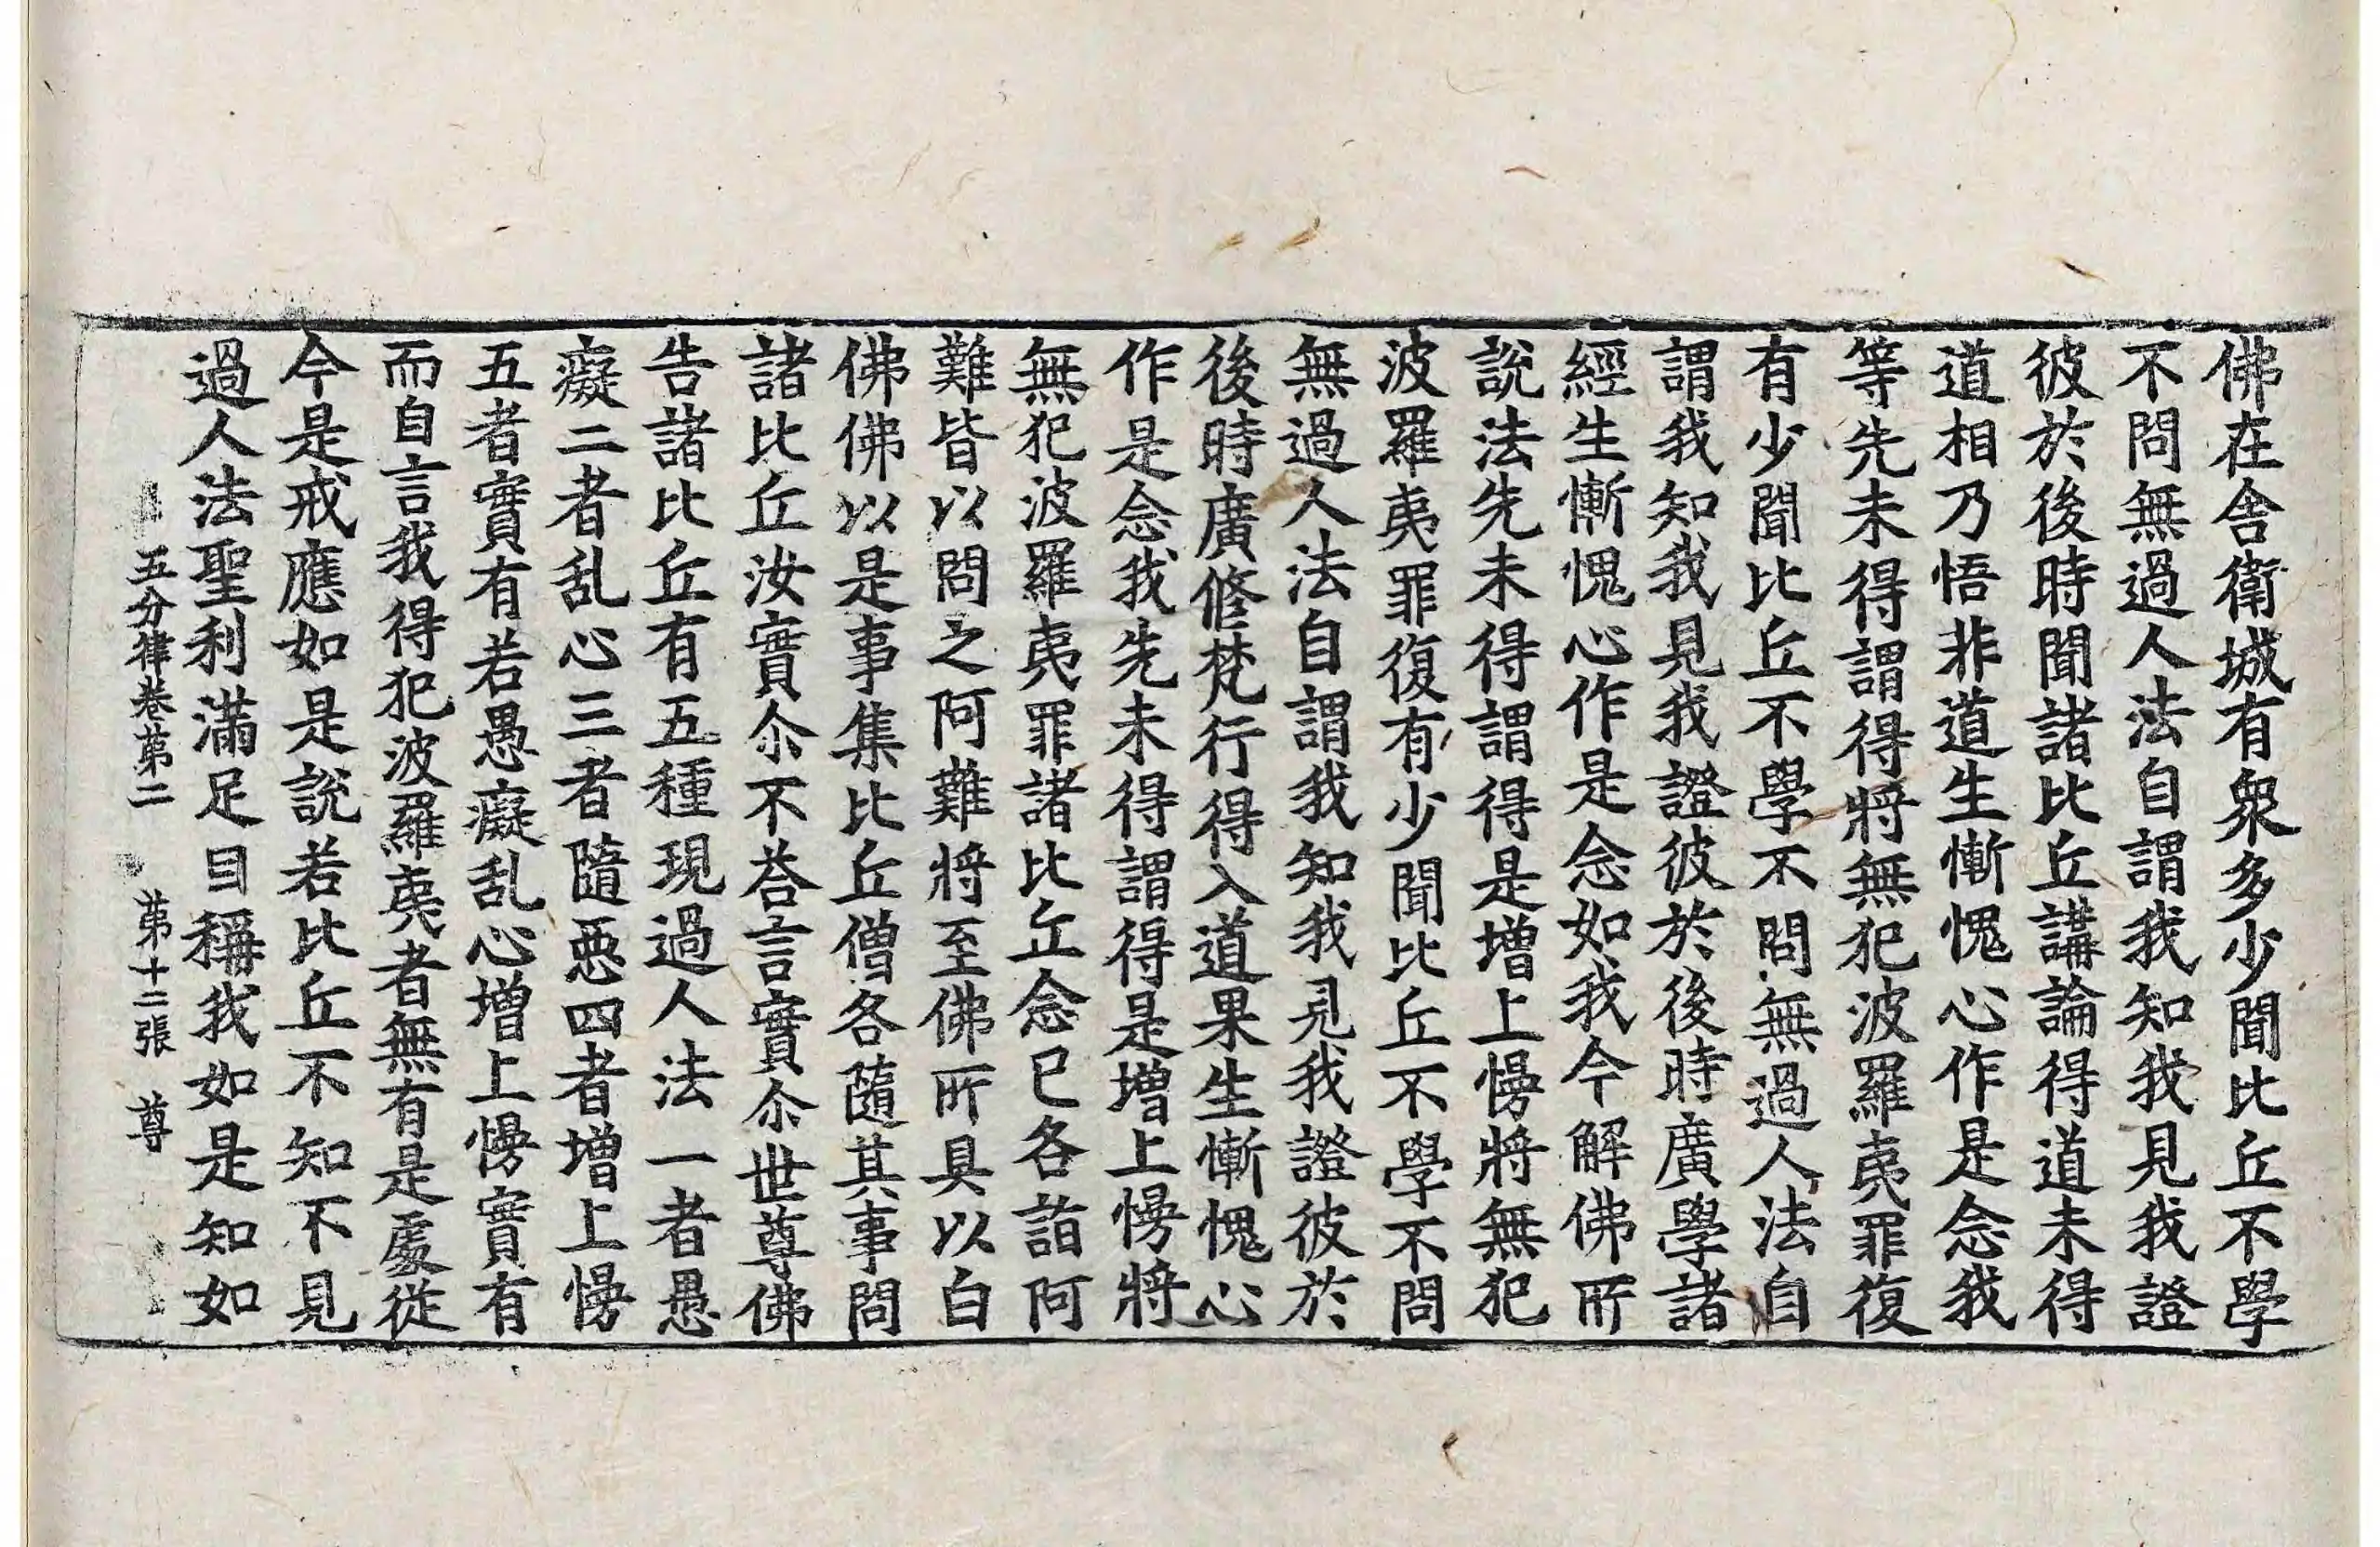 佛在舎衛城有衆多少聞比丘不學
不問無過人法自謂我知我見我證
彼於後時聞諸比丘講論得道未得
道相乃悟非道生慚愧心作是念我
等先未得謂得將無犯波羅夷罪復
有少聞比丘不學不問無過人法自
謂我知我見我證彼於後時廣學諸
經生慚愧心作是念如我今解佛所
說法先未得謂得是增上慢將無犯
波羅夷罪復有少聞比丘不學不問
無過人法自謂我知我見我證彼於
後時廣修梵行得入道果生慚愧心
作是念我先未得謂得是增上慢將
無犯波羅夷罪諸比丘念已各詣阿
難皆以問之阿難將至佛所具以白
佛佛以是事集比丘僧各隨其事問
諸比丘汝實尒不荅言實尒世尊佛
告諸比丘有五種現過人法一者愚
癡二者乱心三者隨惡四者增上慢
五者實有若愚癡乱心增上慢實有
而自言我得犯波羅夷者無有是處從
今是戒應如是說若比丘不知不見
過人法聖利滿足自稱我如是知如
五分律卷第二 第十二張 尊